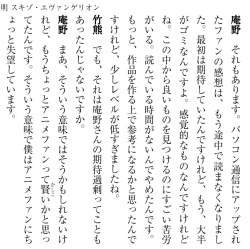 明 スキゾ・エヴァンゲリオン
庵野　それもあります。パソコン通信にアップされ
たファンの感想は、もう途中で読まなくなりまし
た。最初は期待していたんですけれど、もう、大半
がゴミなんですよ。感覚的なものなんですけれど
ね。この中から良いものを見つけるのにすごい苦労
がいる。読んでいる時間がないんでやめたんです。
もっと、作品を作る上で参考になるかと思ったんで
すけれど、少しレベルが低すぎましたね。
竹熊　でも、それは庵野さんの期待過剰ってことも
あったんじゃないですか。
庵野　まあ、そういう意味ではそうかもしれないけ
れど、もうちょっとアニメファンって賢いかと思っ
てたんです。そういう意味で僕はアニメファンにち
ょっと失望しています。